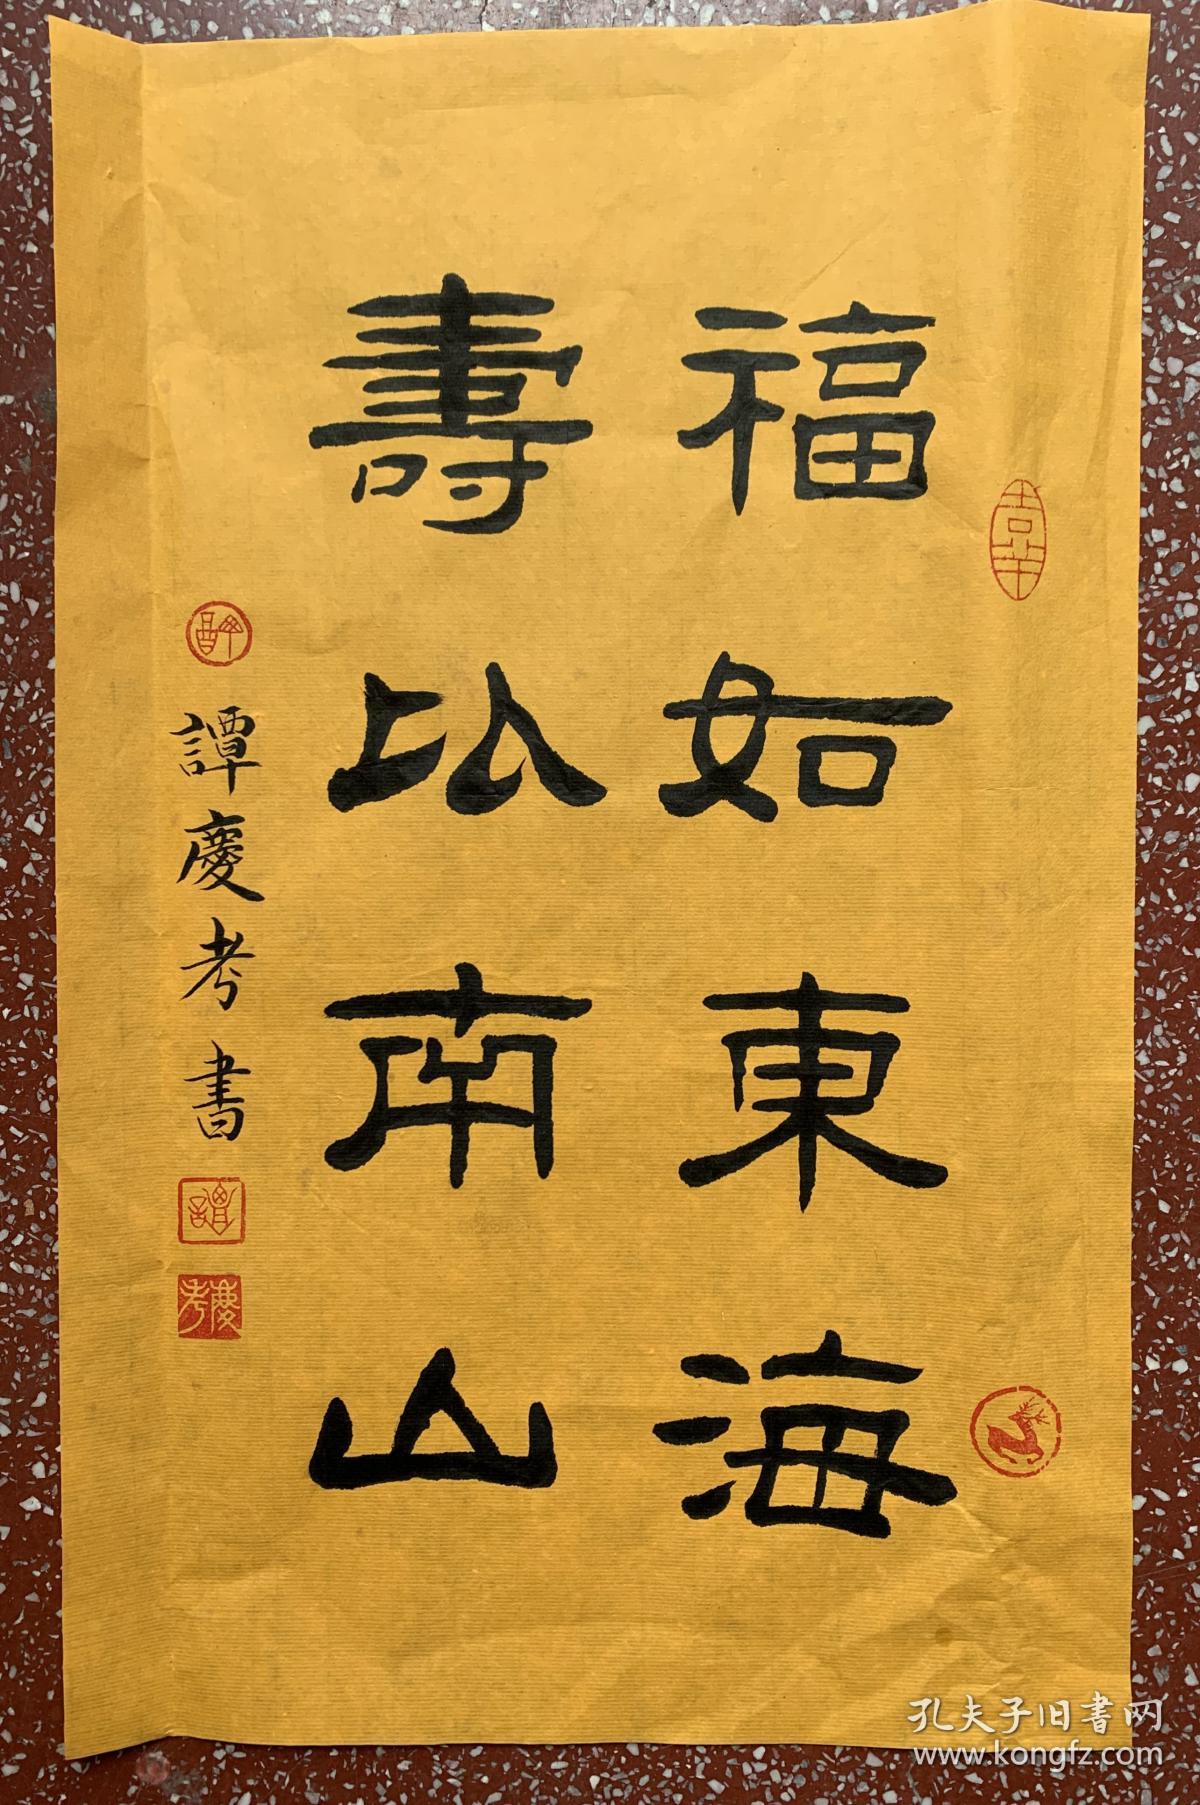 福如東海
壽以南山
譚慶考書
譚
慶考
孔夫子旧書网
www.kongfz.com